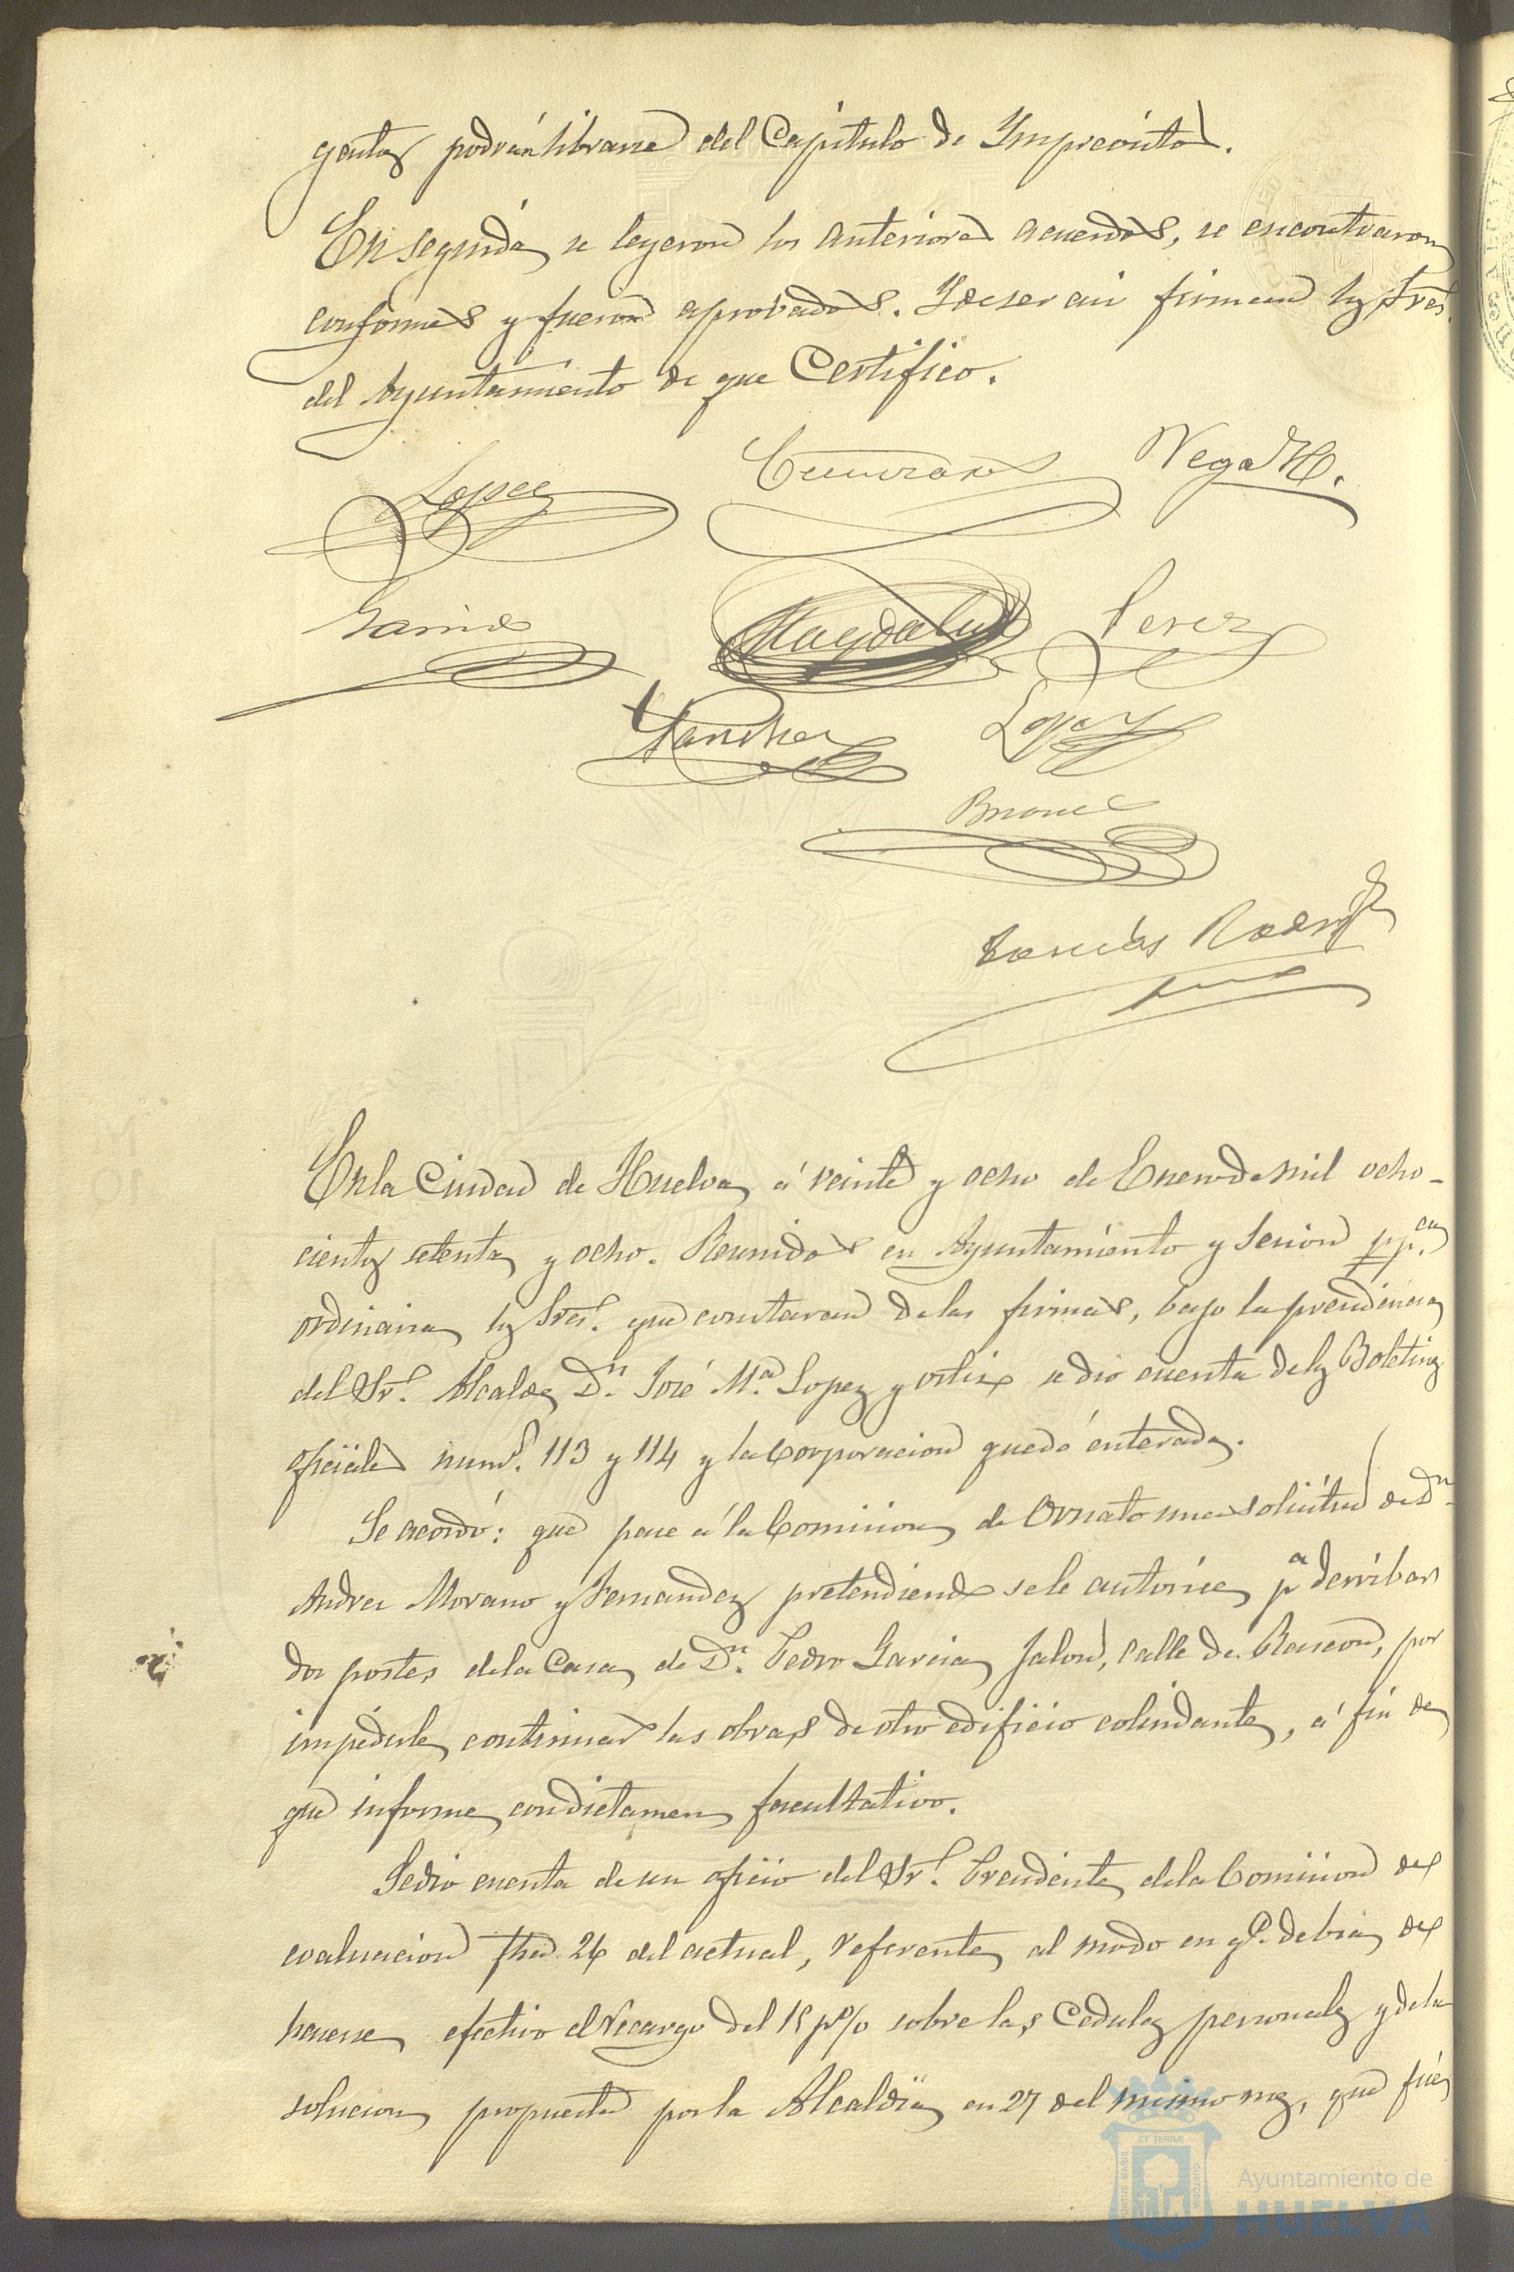 gentes podrán librarse del Capítulo de Imprevistos.
En seguida se leyeron los anteriores acuerdos, se encontraron
conformes y fueron aprobados. Y de ser asi firman los Sres.
del Ayuntamiento de que Certifico.
Lopez
Vega H.
Garrido
Perez
Sanchez
Lopez
En la Ciudad de Huelva á veinte y ocho de Enero de mil ocho-
cientos setenta y ocho. Reunidos en Ayuntamiento y sesion ppca
ordinaria los Sres. que constaran de las firmas, bajo la presidencia
del Sr. Alcalde Dn. José Ma. Lopez y Ortiz se dio cuenta de los Boletines
oficiales nums. 113 y 114 y la Corporacion quedó enterada.
Se acordó: que pase á la Comision de Ornato una solicitud de Dn.
Andres Morano y Fernandez pretendiendo se le autorice pa derribar
dos postes de la Casa de Dn. Pedro Garcia Jalon, calle de Rascon, por
impedirle continuar las obras de otro edificio colindante, á fin de
que informe con dictamen facultativo.
Se dio cuenta de un oficio del Sr. Presidente de la Comision de
evaluacion fha 26 del actual, referente al modo en qe. debia de
hacerse efectivo el recargo del 15 p% sobre las Cedulas personales y de la
solucion propuesta por la Alcaldia en 27 del mismo mes, que fué
Ayuntamiento de
HUELVA